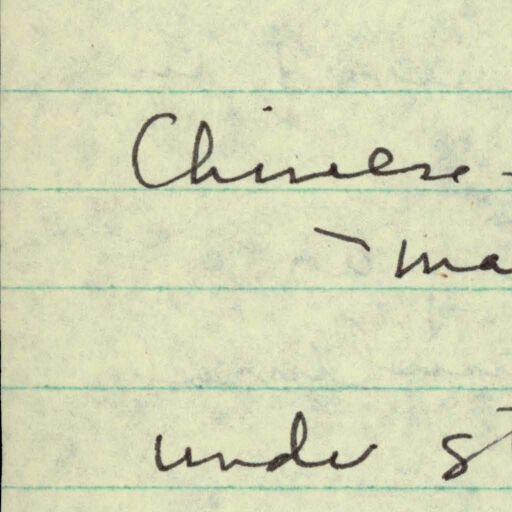 Chinese -
- ma
under st